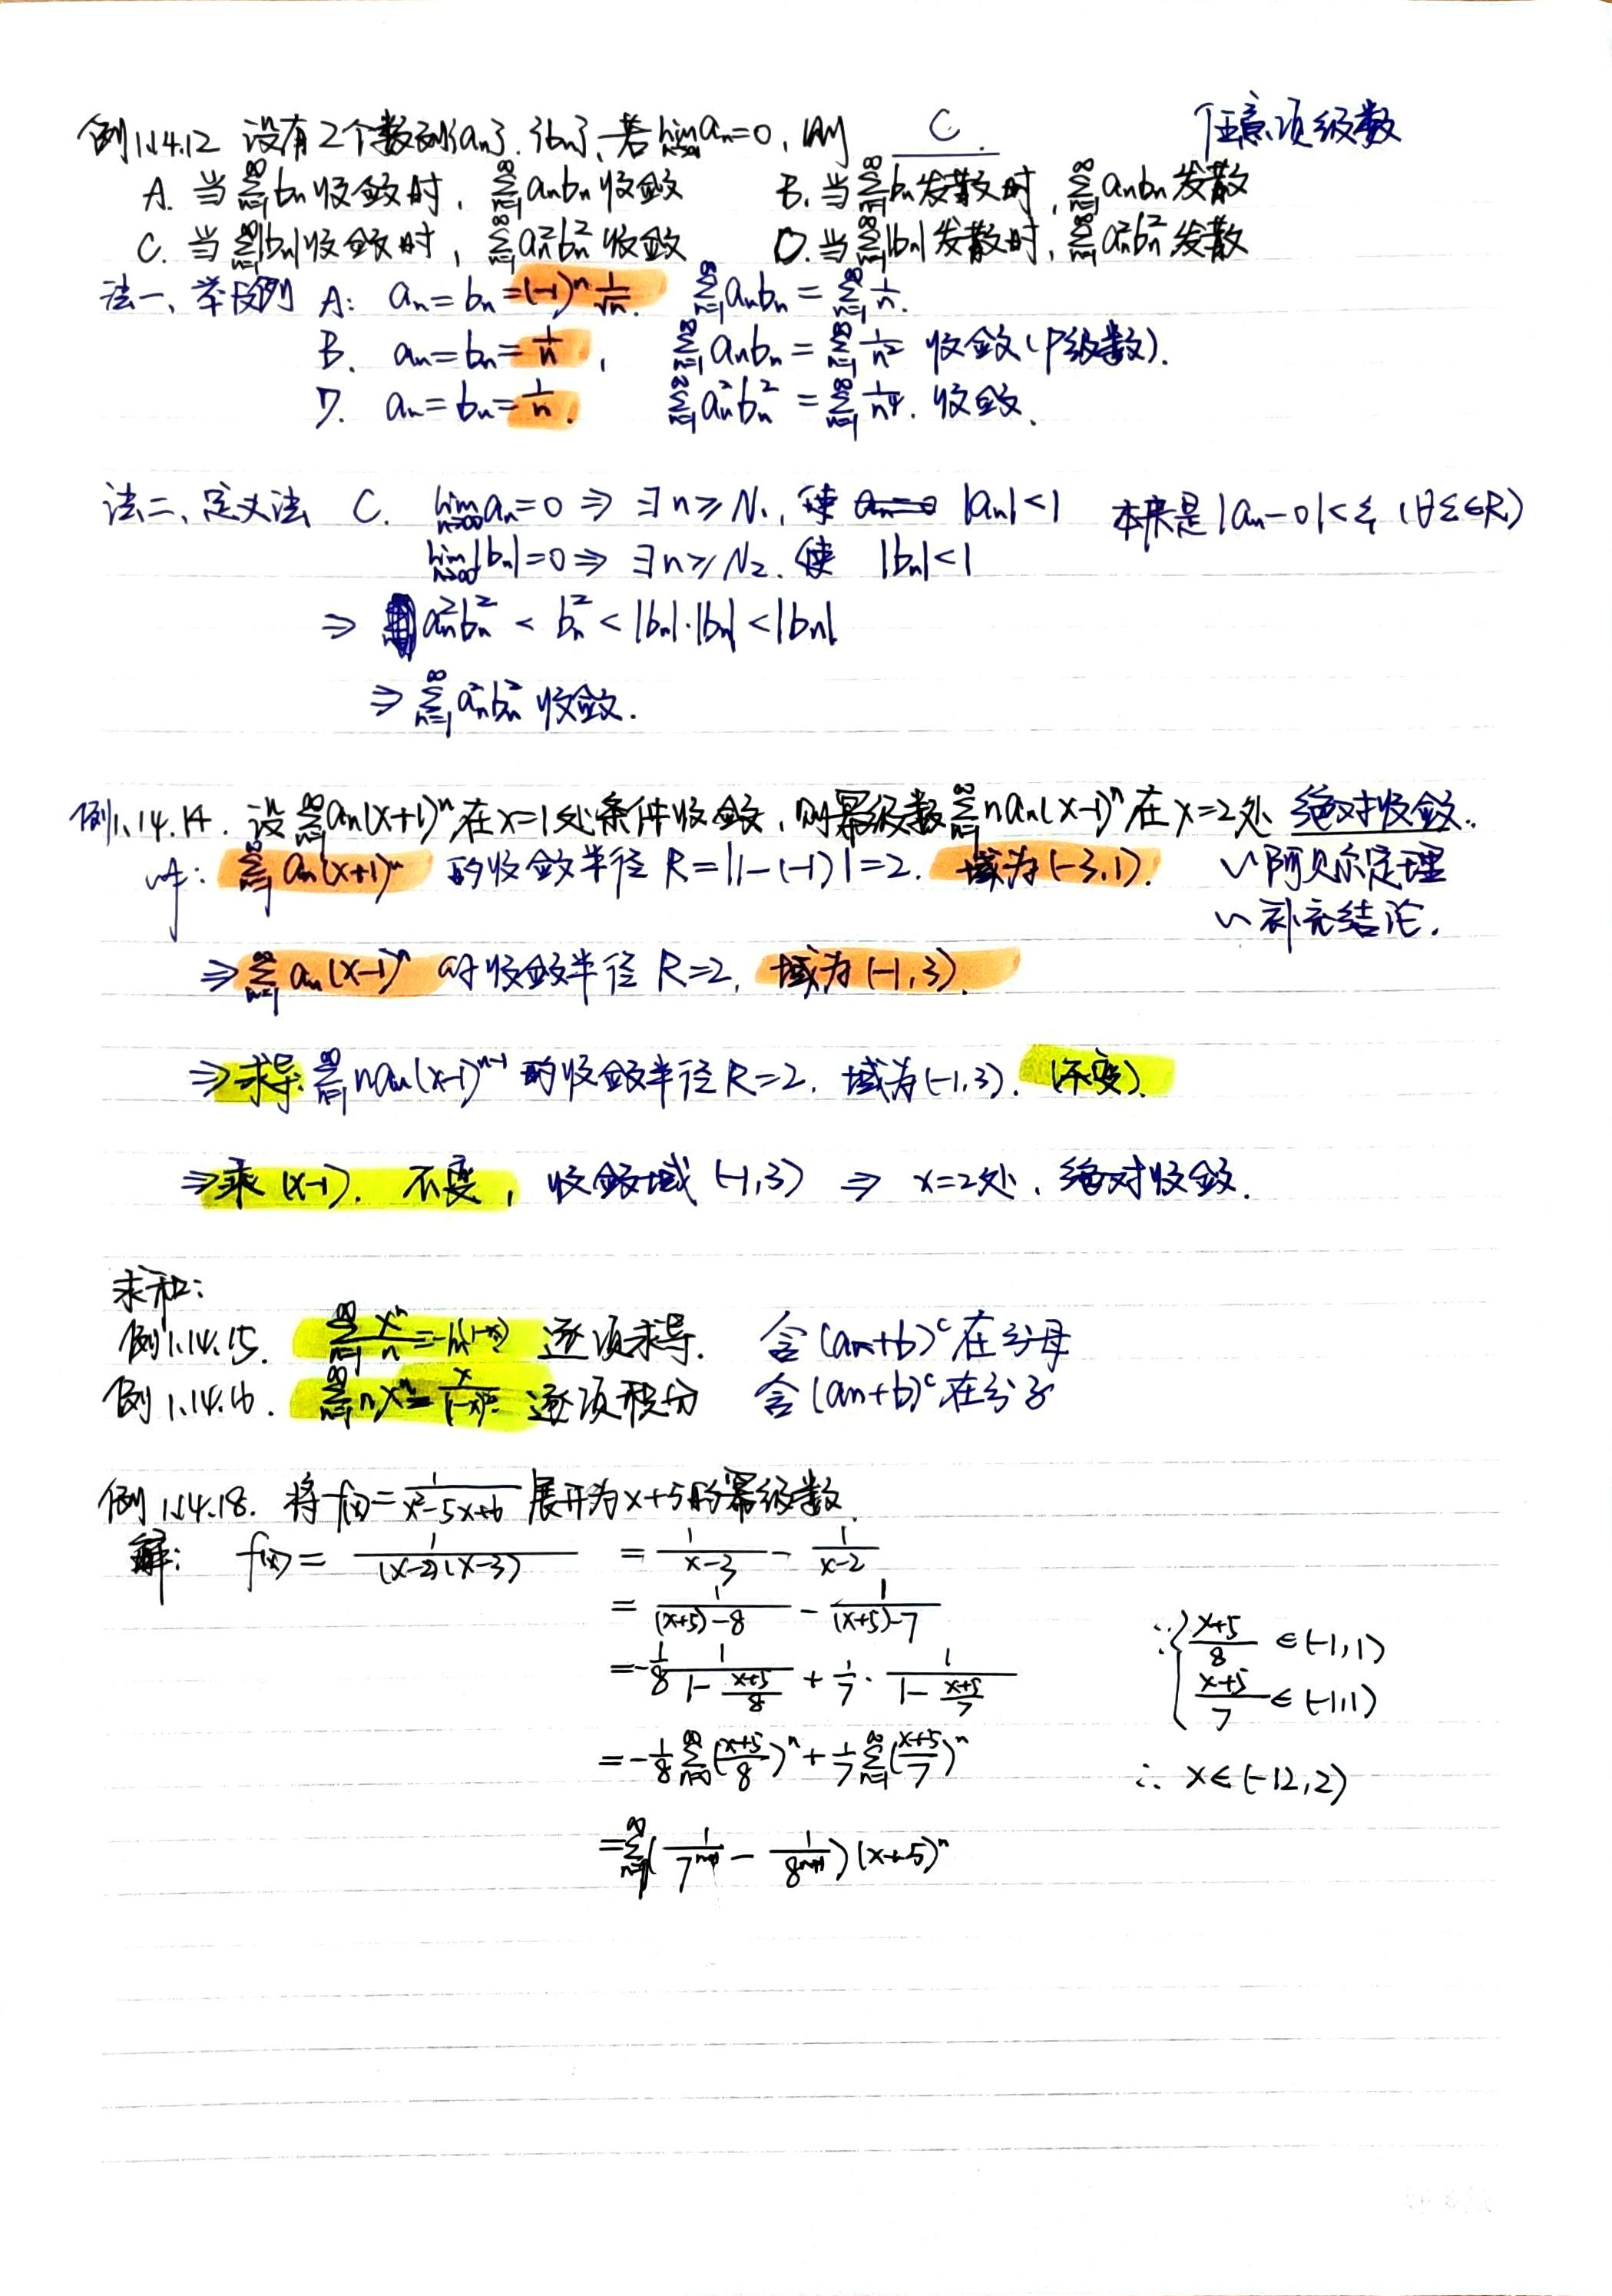 例1.14.12 设有2个数列{an}, {bn}, 若lim n→∞ an=0, 则 C. 任意项级数
A. 当∑n=1^∞ bn收敛时, ∑n=1^∞ anbn收敛 B. 当∑n=1^∞ bn发散时, ∑n=1^∞ anbn发散
C. 当∑n=1^∞ |bn|收敛时, ∑n=1^∞ an²bn²收敛 D. 当∑n=1^∞ |bn|发散时, ∑n=1^∞ an²bn²发散
法一、举反例 A: an=bn=(-1)^n 1/√n. ∑n=1^∞ anbn=∑n=1^∞ 1/n.
B. an=bn=1/n, ∑n=1^∞ anbn=∑n=1^∞ 1/n² 收敛(P级数).
D. an=bn=1/n. ∑n=1^∞ an²bn²=∑n=1^∞ 1/n⁴. 收敛.
法二、定义法 C. lim n→∞ an=0 ⇒ ∃n≥N₁, 使 |an|<1 本来是|an-0|<ε (∀ε∈R)
lim n→∞ |bn|=0 ⇒ ∃n≥N₂. 使 |bn|<1
⇒ an²bn² < bn² < |bn|·|bn| < |bn|
⇒ ∑n=1^∞ an²bn² 收敛.
例1.14.14. 设∑n=1^∞ an(x+1)^n在x=1处条件收敛, 则幂级数∑n=1^∞ nan(x-1)^n在x=2处 绝对收敛.
∑n=1^∞ an(x+1)^n 的收敛半径 R=|1-(-1)|=2. 域为(-3,1). ~阿贝尔定理
~补充结论.
⇒∑n=1^∞ an(x-1)^n 的收敛半径 R=2, 域为(-1,3).
⇒求导: ∑n=1^∞ nan(x-1)^(n-1) 的收敛半径R=2. 域为(-1,3). (不变).
⇒乘(x-1). 不变, 收敛域(-1,3) ⇒ x=2处, 绝对收敛.
求和:
例1.14.15. ∑n=1^∞ x^n/n=-ln(1-x) 逐项求导. 含(an+b)^c在分母
例1.14.16. ∑n=1^∞ nx^n=x/(1-x)² 逐项积分 含(an+b)^c在分子
例1.14.18. 将f(x)=1/(x²-5x+6)展开为x+5的幂级数.
解: f(x)=1/((x-2)(x-3)) =1/(x-3)-1/(x-2)
=1/((x+5)-8)-1/((x+5)-7)
=-1/8 1/(1-(x+5)/8)+1/7·1/(1-(x+5)/7) ∵{(x+5)/8∈(-1,1) (x+5)/7∈(-1,1)
=-1/8∑n=0^∞((x+5)/8)^n+1/7∑n=1^∞((x+5)/7)^n ∴ x∈(-12,2)
=∑^∞(1/7^(n+1)-1/8^(n+1))(x+5)^n